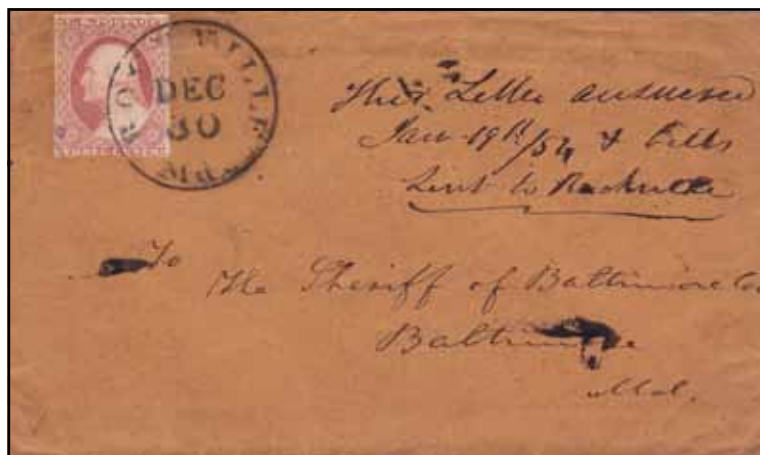 U.S. POSTAGE
THREE CENTS
ROCKVILLE
DEC
30
Md.
This Letter answered
Jan 19th/54 & bills
Sent to Rockville
To
The Sheriff of Baltimore Co
Baltimore
Md.